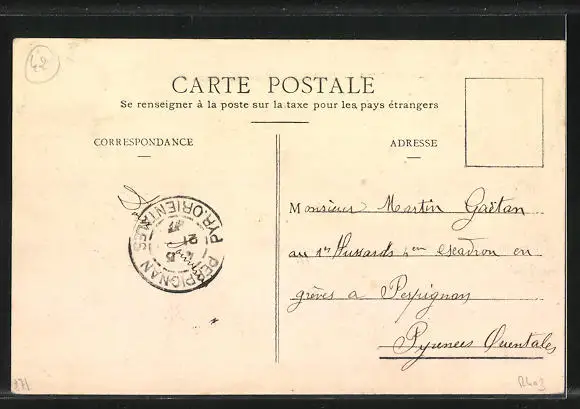 42
CARTE POSTALE
Se renseigner à la poste sur la taxe pour les pays étrangers
CORRESPONDANCE
ADRESSE
PERPIGNAN
PYR. ORIENTALES
Monsieur Martin Gaëtan
au 1er Hussards escadron en
grèves a Perpignan
Pyrenees Orientales